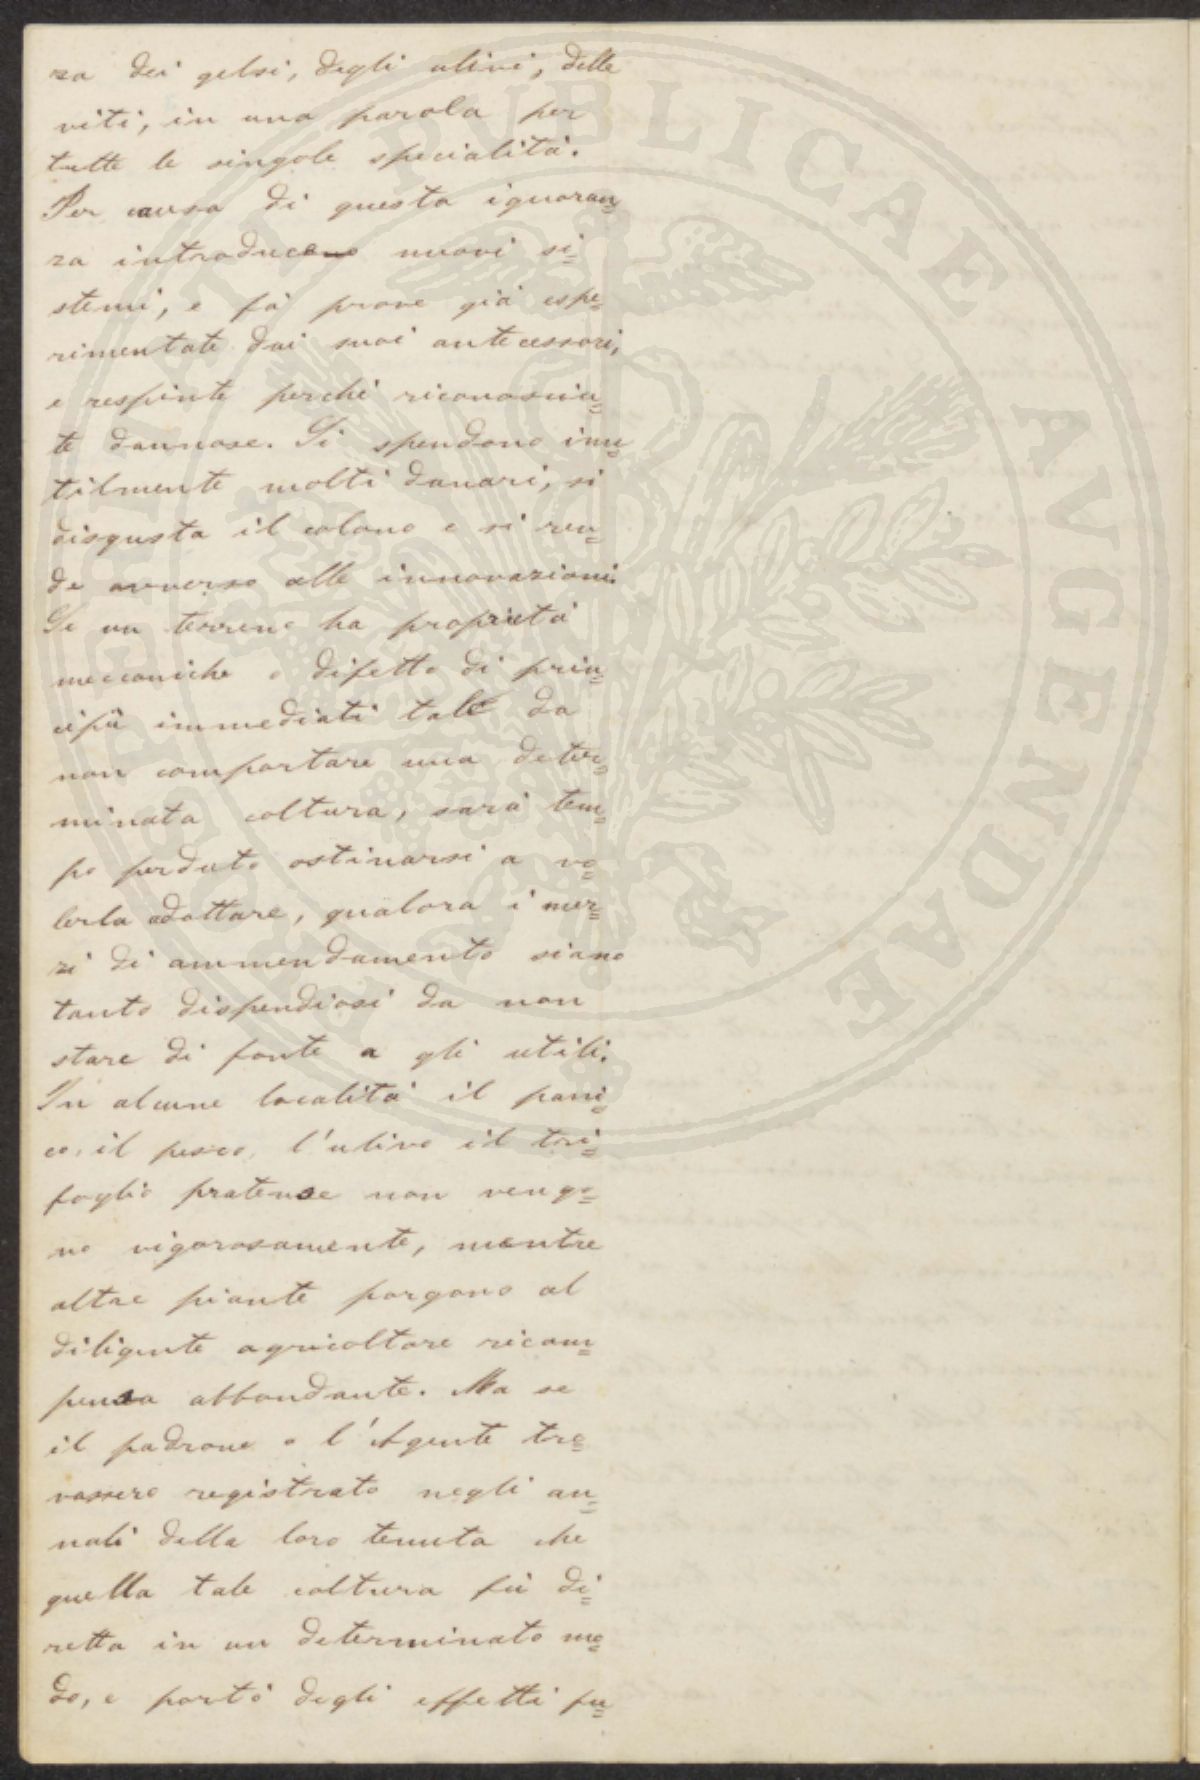 ra dei gelsi, degli ulivi, delle
viti, in una parola per
tutte le singole specialità.
Per causa di questa ignoran=
za introducono nuovi si=
stemi, e fà prove già espe=
rimentate dai suoi antecessori,
e respinte perchè riconosciu=
te dannose. Si spendono inu=
tilmente molti danari, si
disgusta il colono e si ren=
de avverso alle innovazioni.
Se un terreno ha proprietà
meccaniche o difetto di prin=
cipii immediati tale da
non comportare una deter=
minata coltura, sarà tem=
po perduto ostinarsi a vo=
lerla adottare, qualora i mez=
zi di ammendamento siano
tanto dispendiosi da non
stare di fonte a gli utili.
In alcune località il pani=
co, il pesco, l'ulivo il tri=
foglio pratense non vengo=
no vigorosamente, mentre
altre piante porgono al
diligente agricoltore ricom=
pensa abbondante. Ma se
il padrone o l'Agente tro=
vassero registrato negli an=
nali della loro tenuta che
quella tale coltura fù di=
retta in un determinato mo=
do, e portò degli effetti fu=
PUBLICAE AUGENDAE